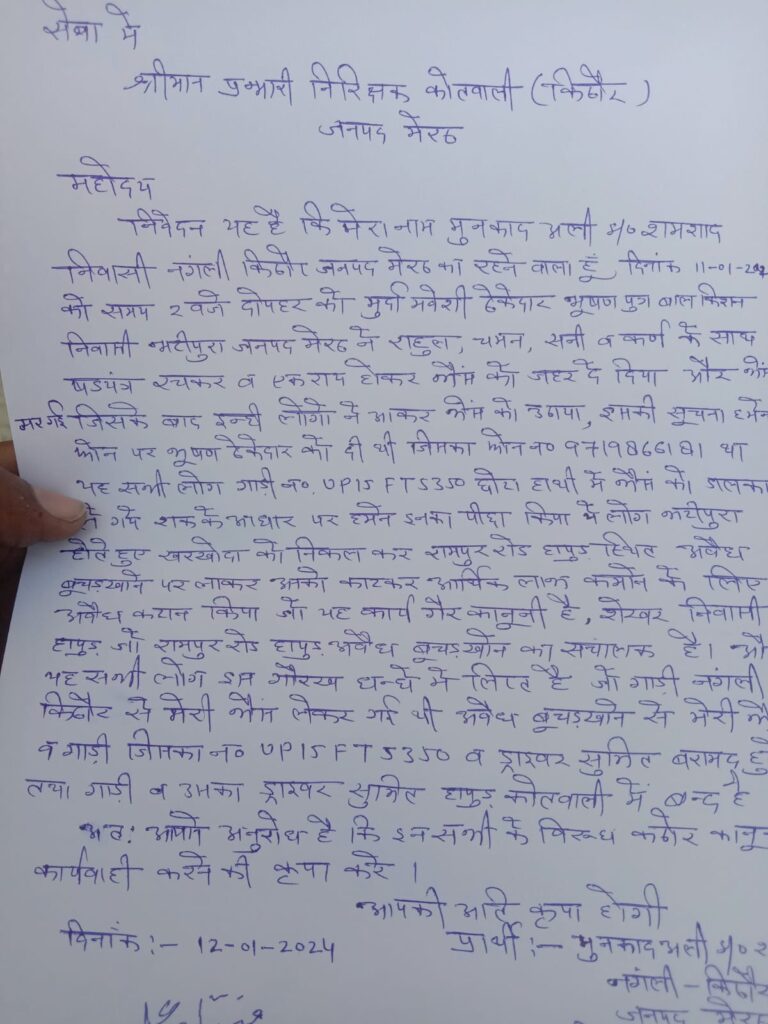 सेवा में
श्रीमान प्रभारी निरिक्षक कोतवाली (किठौर)
जनपद मेरठ
महोदय
निवेदन यह है कि मेरा नाम मुनकाद अली s/o शमशाद
निवासी नंगली किठौर जनपद मेरठ का रहने वाला हूँ, दिनांक 11-01-202
को समय 2 वजे दोपहर को मुर्दा मवेशी ठेकेदार भूषण पुत्र बाल किशन
निवासी भटीपुरा जनपद मेरठ ने राहुल, चमन, सनी व कर्ण के साथ
षडयंत्र रचकर व एक राय होकर भैंस को जहर दे दिया और भैंस
मर गई जिसके बाद इन्ही लोगो ने आकर भैंस को उठाया, इसकी सूचना हमने
फोन पर भूषण ठेकेदार को दी थी जिसका फोन न० 9719866181 था
यह सभी लोग गाड़ी न०. UP15 FT5350 छोटा हाथी में भैंस को डालकर
ले गये शक के आधार पर हमने इनका पीछा किया ये लोग भटीपुरा
होते हुए खरखोदा को निकल कर रामपुर रोड हापुड़ स्थित अवैध
बूचड़खाने पर लाकर उसको काटकर आर्थिक लाभ कमाने के लिए
अवैध कटान किया जो यह कार्य गैर कानूनी है, शेखर निवासी
हापुड़ जो रामपुर रोड हापुड़ अवैध बूचड़खाने का संचालक है। औ
यह सभी लोग इस गौरख धन्धे में लिप्त है जो गाड़ी नंगली
किठौर से मेरी भैंस लेकर गई थी अवैध बूचड़खाने से मेरी भैं
व गाड़ी जिसका न० UP15FT5350 व ड्राइवर सुमित बरामद हु
तथा गाड़ी व उसका ड्राइवर सुमित हापुड़ कोतवाली में बन्द है
अत: आपसे अनुरोध है कि इन सभी के विरूध कठोर कानून
कार्यवाही करने की कृपा करे।
आपकी अति कृपा होगी
दिनांक :- 12-01-2024 प्रार्थी :- मुनकाद अली s/o श
नंगली - किठौर
जनपद मेरठ